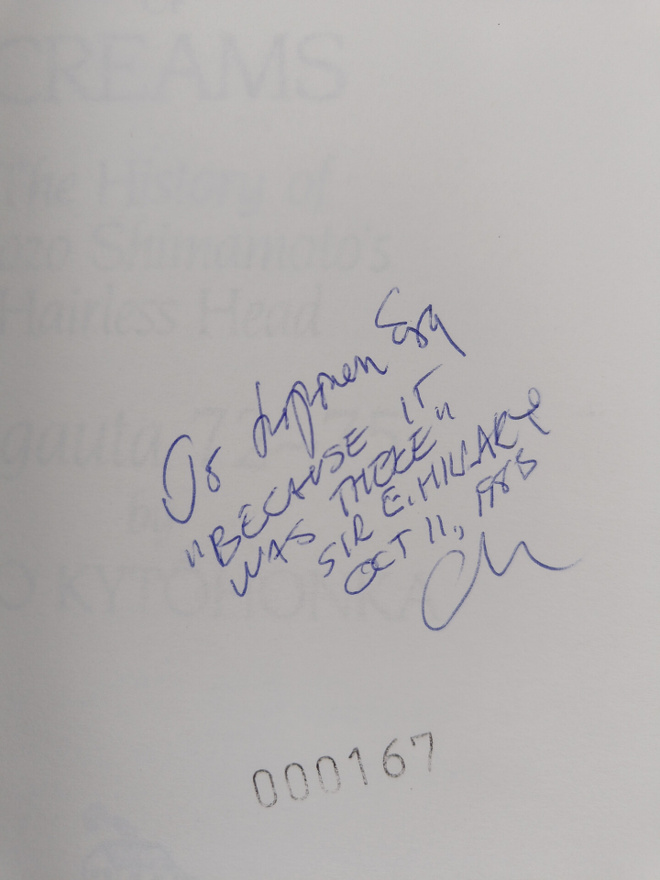 CREAMS
The History of
ezo Shimamoto's
Hairless Head
gauta 72-75
by
O KYTÖHONKA
Esq
"BECAUSE IT
WAS THERE"
SIR E. HILLARY
OCT 11, 1985
000167